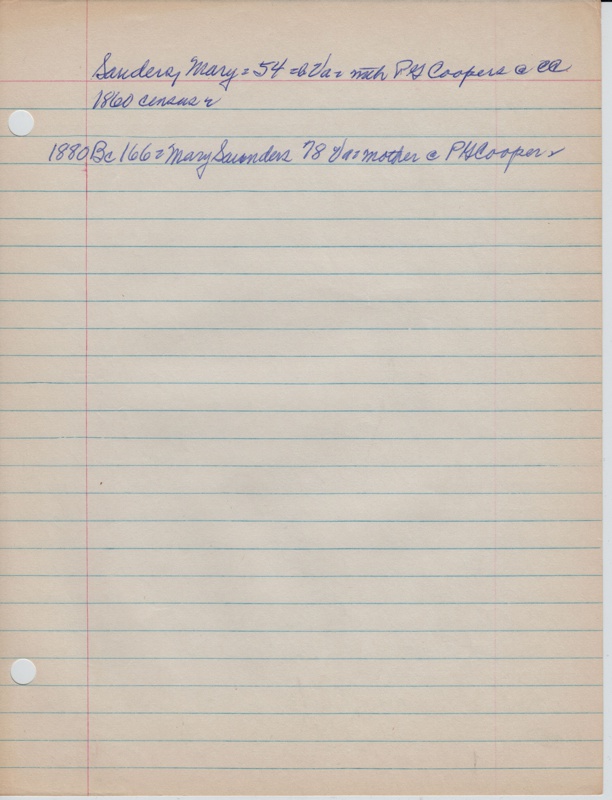 Sanders, Mary = 54 = b Va = with P G Coopers @ CC
1860 census
1880 Bc 166 = Mary Saunders 78 Va = mother @ P G Cooper